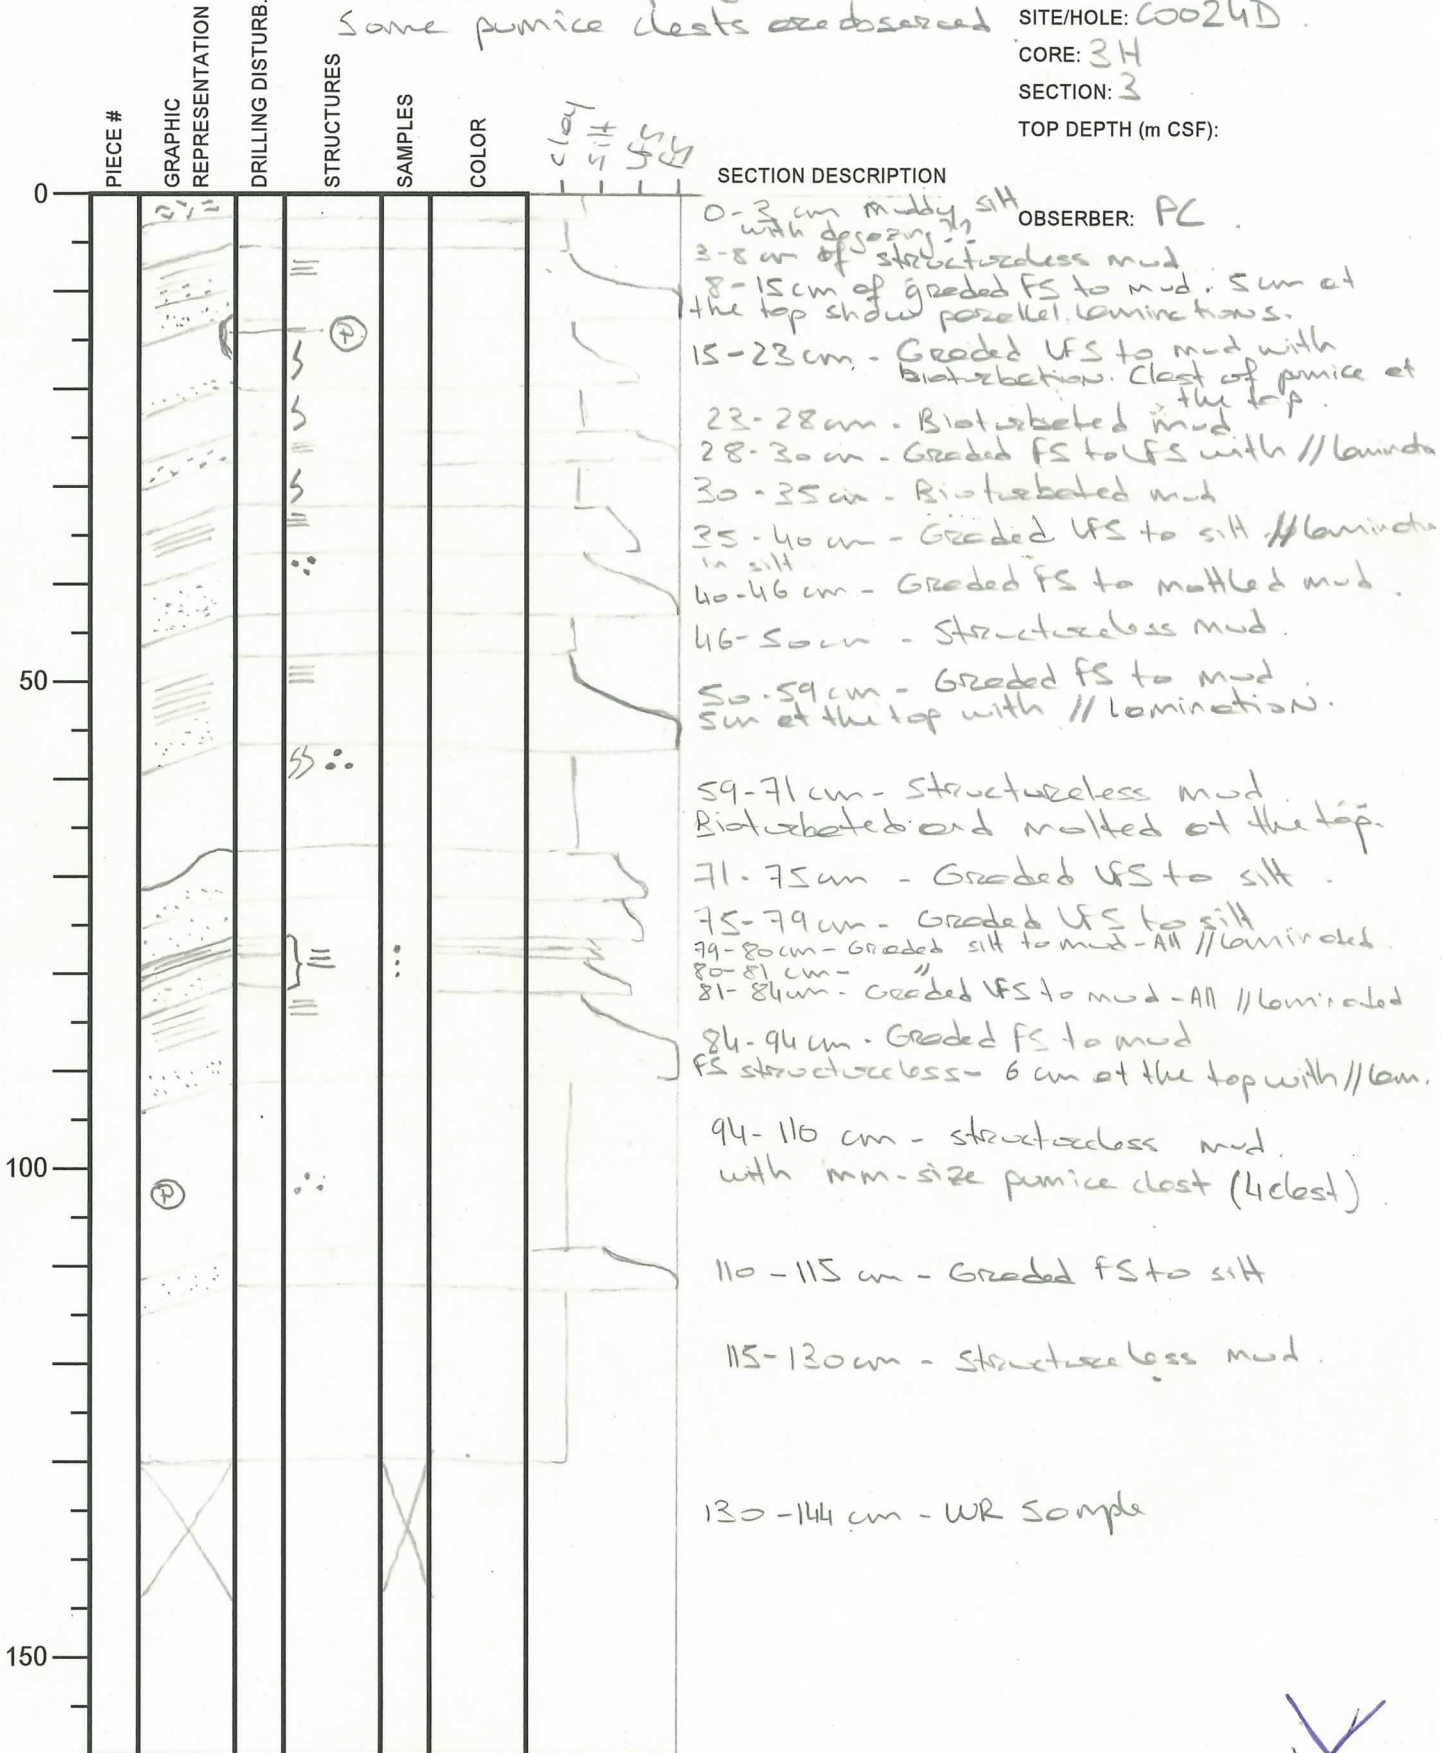 Some pumice clasts are observed
SITE/HOLE: C0024D
CORE: 3H
SECTION: 3
TOP DEPTH (m CSF):
PIECE #
GRAPHIC REPRESENTATION
DRILLING DISTURB.
STRUCTURES
SAMPLES
COLOR
clay
silt
VFS
FS
SECTION DESCRIPTION
OBSERBER: PC
0
50
100
150
P
P
0-3 cm muddy silt
with
3-8 cm of structureless mud
8-15 cm of graded FS to mud. 5 cm at
the top show parallel laminations.
15-23 cm. - Graded VFS to mud with
Bioturbation. Clast of pumice at
the top.
23-28 cm - Bioturbated mud
28-30 cm - Graded FS to VFS with // laminatio
30-35 cm - Bioturbated mud
35-40 cm - Graded VFS to silt // laminatio
in silt
40-46 cm - Graded FS to mottled mud.
46-50 cm - Structureless mud.
50-59 cm - Graded FS to mud
5 cm at the top with // lamination.
59-71 cm - Structureless mud.
Bioturbated and molted at the top.
71-75 cm - Graded VFS to silt.
75-79 cm - Graded VFS to silt
79-80 cm - Graded silt to mud - All // laminated
80-81 cm - "
81-84 cm - Graded VFS to mud - All // laminated
84-94 cm - Graded FS to mud
FS structureless - 6 cm at the top with // lam.
94-110 cm - structureless mud.
with mm-size pumice clast (4 clast)
110-115 cm - Graded FS to silt
115-130 cm - Structureless mud.
130-144 cm - WR Sample